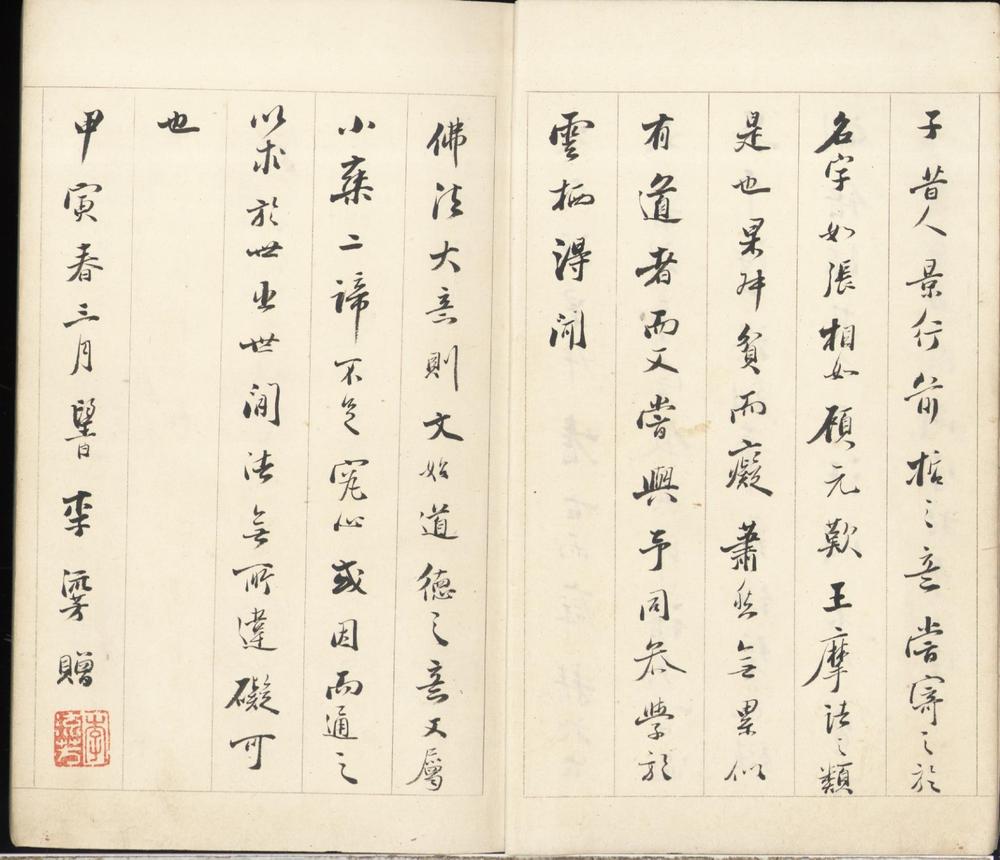 子昔人景行前哲之意嘗寄之於
名字如張相如顧元歎王摩詰之類
是也果奸貧而癡蕭然無累似
有道者而又嘗與予同參學於
雲栖得聞
佛法大意則文始道德之意又屬
小乘二諦不足究心或因而通之
以求於世出世間法無所違礙可
也
甲寅春三月醫李流芳贈
李流芳